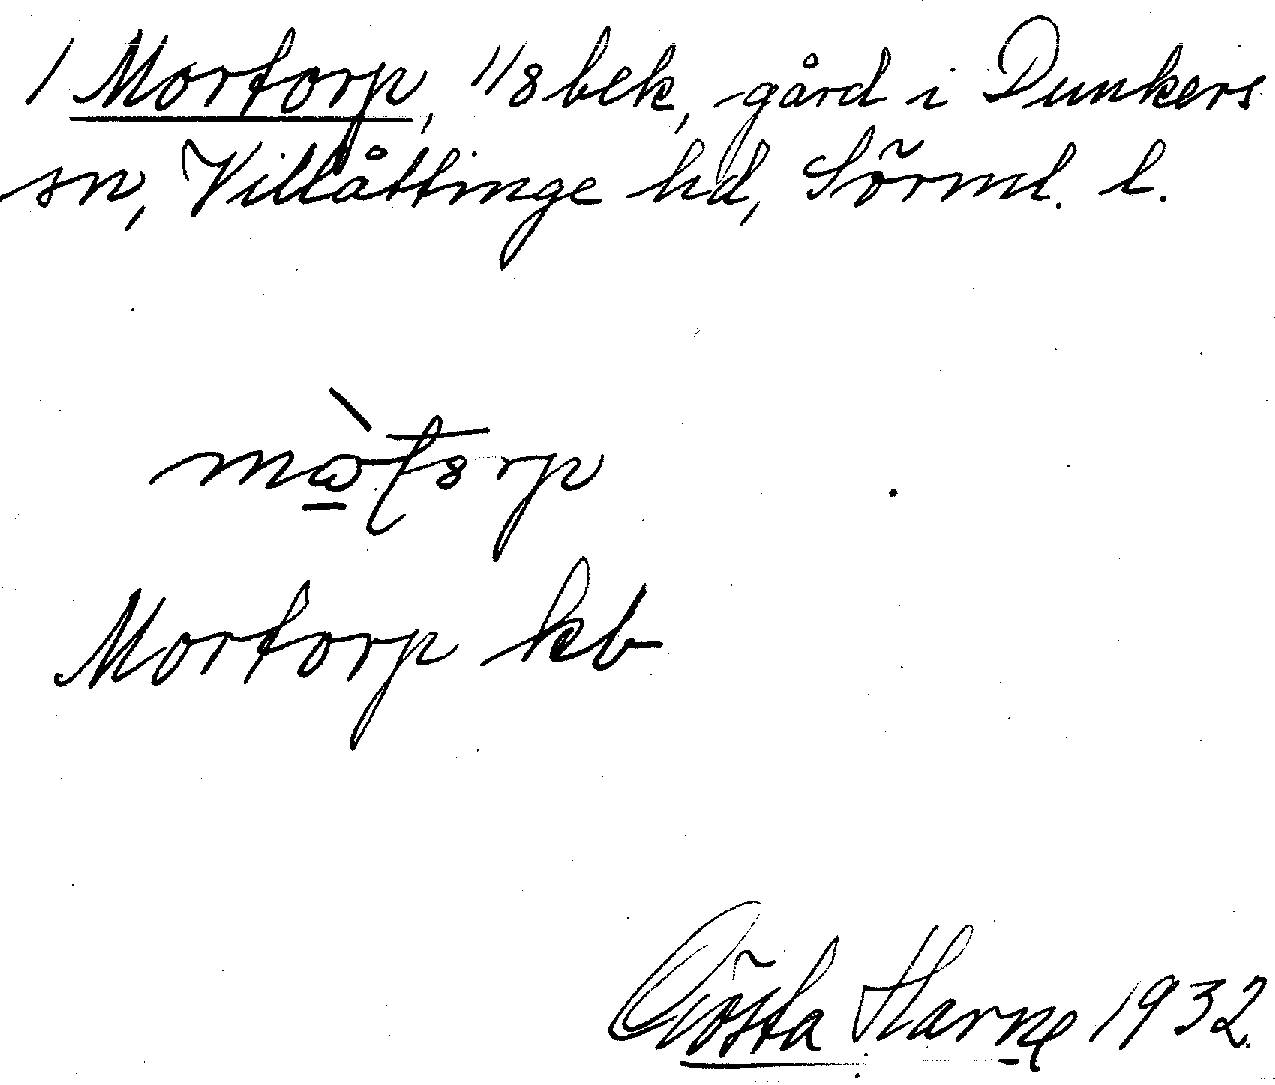 1 Mortorp, 1/8 bek, gård i Dunkers
sn, Villåttinge hd, Sörml. l.
Mortorp kb
Gösta Harne 1932